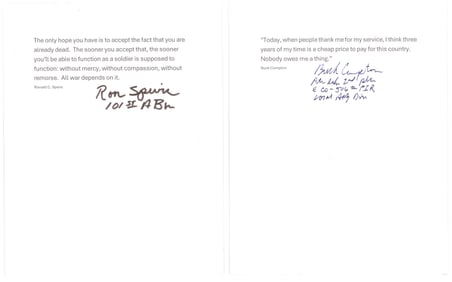 The only hope you have is to accept the fact that you are
already dead. The sooner you accept that, the sooner
you'll be able to function as a soldier is supposed to
function: without mercy, without compassion, without
remorse. All war depends on it.
Ronald C. Speirs
Ron Speirs
101st ABn
"Today, when people thank me for my service, I think three
years of my time is a cheap price to pay for this country.
Nobody owes me a thing."
Buck Compton
Buck Compton
2nd
E CO - 506 PIR